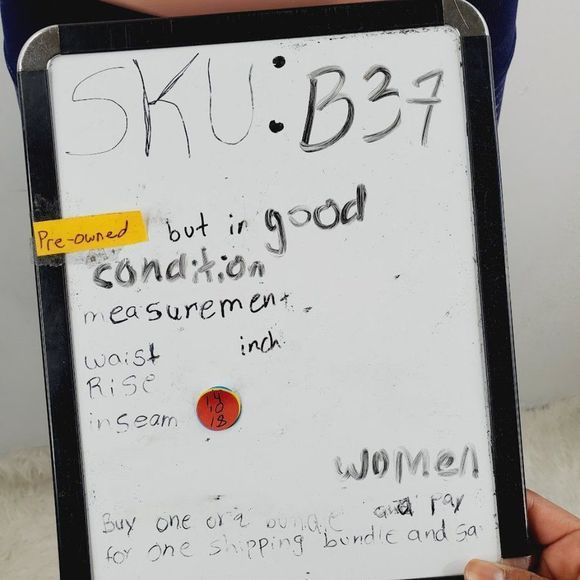 SKU: B37
Pre-owned but in good
condition
measurement
waist inch
Rise
inseam
14
10
18
women
Buy one or a bundle and Pay
for one shipping bundle and Sa